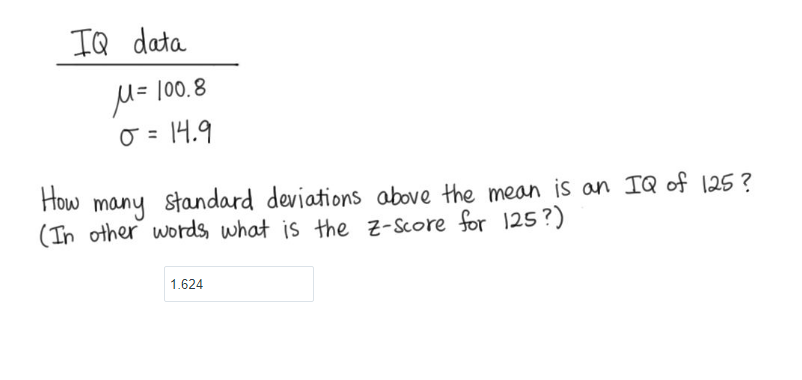 IQ data
μ = 100.8
σ = 14.9
How many standard deviations above the mean is an IQ of 125?
(In other words, what is the z-score for 125?)
1.624